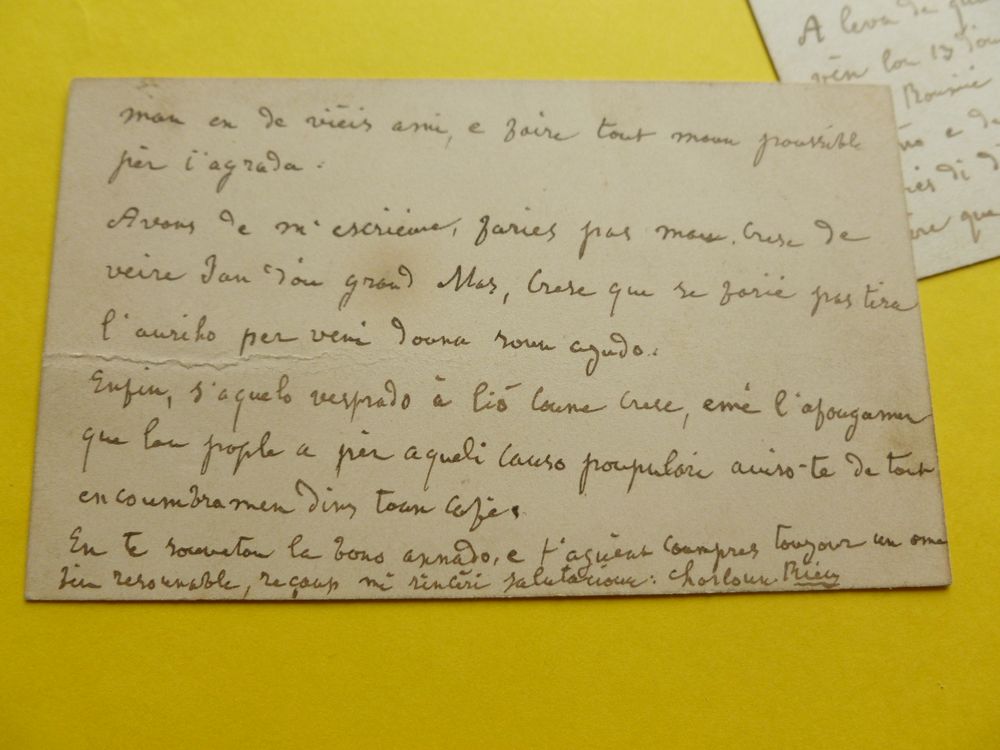 mau en de vièis ami, e faire tout moun poussible
pèr t'agrada.
Avans de m'escrieure, fariés pas mau, crese de
veire Jan dóu grand Mas, crese que se farié pas tira
l'auriho per veni douna soun ajudo.
Enfin, s'aquelo vesprado à liò coume crese, emé l'afougamen
que lou pople a pèr aqueli causo poupulàri aviso-te de tout
encoumbramen dins toun cafè.
En te souvetan la bono annado, e t'aguènt coumpres toujour un ome
bèn resounable, reçaup mi sincèri salutacioun: Charloun Riéu
A leva de
vèn lou 13
Roumié
e de
di
que